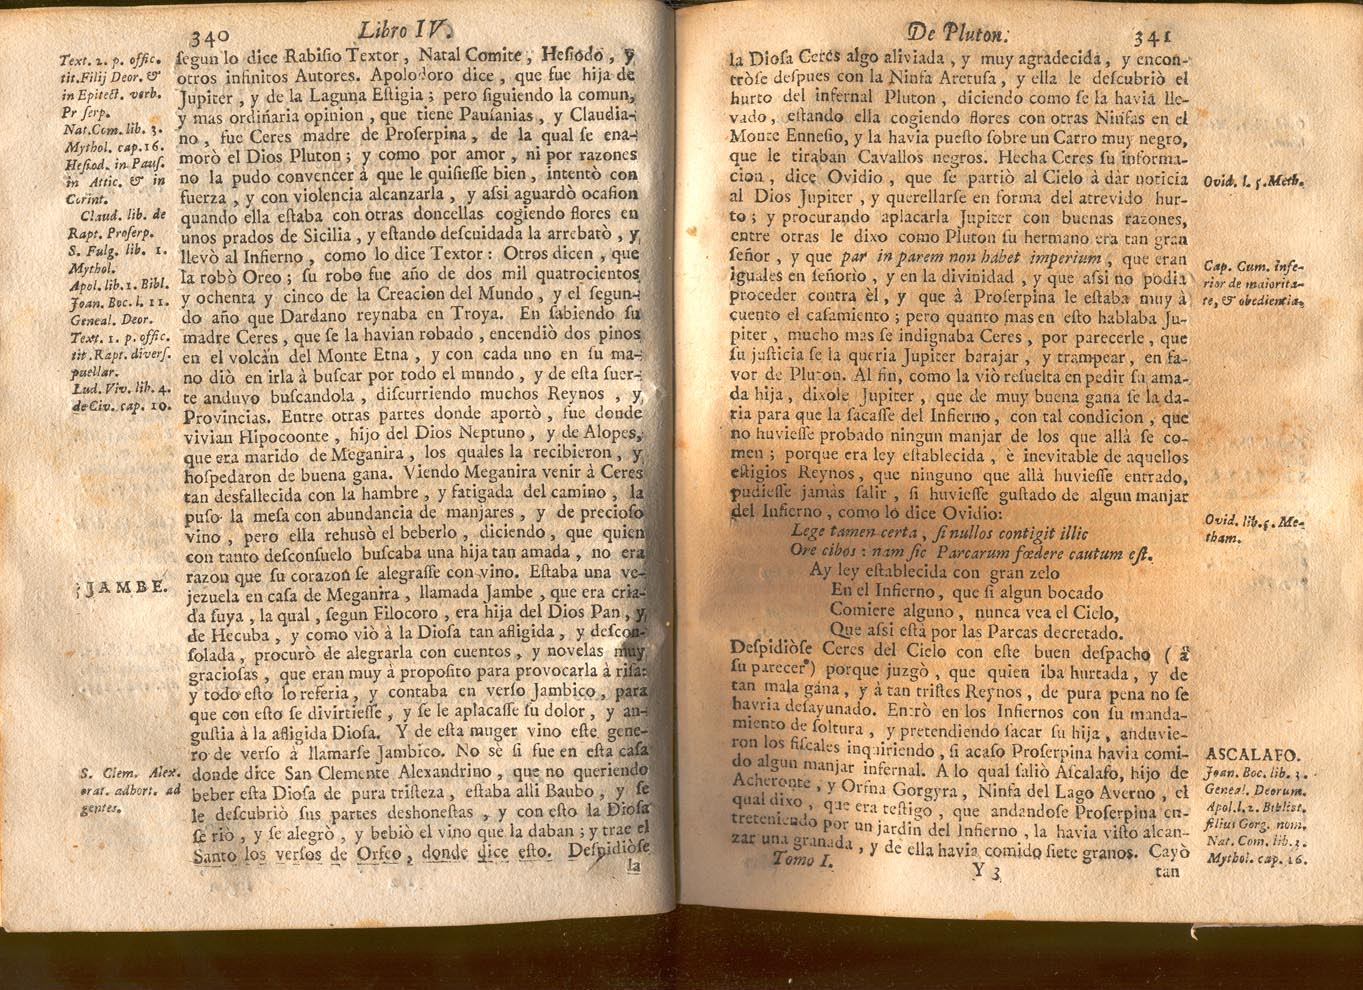 340
Libro IV.
Text. 2. p. offic.
tit. Filij Deor. &
in Epitect. verb.
Pr serp.
Nat. Com. lib. 3.
Mythol. cap. 16.
Hesiod. in Pausſ.
in Attic. & in
Corint.
Claud. lib. de
Rapt. Proſerp.
S. Fulg. lib. 1.
Mythol.
Apol. lib. 1. Bibl.
Joan. Boc. l. 11.
Geneal. Deor.
Text. 1. p. offic.
tit. Rapt. diverſ.
puellar.
Lud. Viv. lib. 4.
de Civ. cap. 10.
JAMBE.
S. Clem. Alex.
orat. adhort. ad
gentes.
ſegun lo dice Rabiſio Textor, Natal Comite, Heſiodo, y
otros infinitos Autores. Apolodoro dice, que fue hija de
Jupiter, y de la Laguna Eſtigia; pero ſiguiendo la comun,
y mas ordinaria opinion, que tiene Pauſanias, y Claudia-
no, fue Ceres madre de Proſerpina, de la qual ſe ena-
morò el Dios Pluton; y como por amor, ni por razones
no la pudo convencer à que le quiſieſſe bien, intentò con
fuerza, y con violencia alcanzarla, y aſsi aguardò ocaſion
quando ella eſtaba con otras doncellas cogiendo flores en
unos prados de Sicilia, y eſtando deſcuidada la arrebatò, y
llevò al Infierno, como lo dice Textor: Otros dicen, que
la robò Oreo; ſu robo fue año de dos mil quatrocientos
y ochenta y cinco de la Creacion del Mundo, y el ſegun-
do año que Dardano reynaba en Troya. En ſabiendo ſu
madre Ceres, que ſe la havian robado, encendiò dos pinos
en el volcàn del Monte Etna, y con cada uno en ſu ma-
no diò en irla à buſcar por todo el mundo, y de eſta ſuer-
te anduvo buſcandola, diſcurriendo muchos Reynos, y
Provincias. Entre otras partes donde aportò, fue donde
vivian Hipocoonte, hijo del Dios Neptuno, y de Alopes,
que era marido de Meganira, los quales la recibieron, y
hoſpedaron de buena gana. Viendo Meganira venir à Ceres
tan desfallecida con la hambre, y fatigada del camino, la
puſo la meſa con abundancia de manjares, y de precioſo
vino, pero ella rehusò el beberlo, diciendo, que quien
con tanto deſconſuelo buſcaba una hija tan amada, no era
razon que ſu corazon ſe alegraſſe con vino. Eſtaba una ve-
jezuela en caſa de Meganira, llamada Jambe, que era cria-
da ſuya, la qual, ſegun Filocoro, era hija del Dios Pan, y
de Hecuba, y como viò à la Dioſa tan afligida, y deſcon-
ſolada, procurò de alegrarla con cuentos, y novelas muy
gracioſas, que eran muy à propoſito para provocarla à riſa:
y todo eſto lo referia, y contaba en verſo Jambico, para
que con eſto ſe divirtieſſe, y ſe le aplacaſſe ſu dolor, y an-
guſtia à la afligida Dioſa. Y de eſta muger vino eſte gene-
ro de verſo à llamarſe Jambico. No sè ſi fue en eſta caſa
donde dice San Clemente Alexandrino, que no queriendo
beber eſta Dioſa de pura triſteza, eſtaba alli Baubo, y ſe
le deſcubriò ſus partes deshoneſtas, y con eſto la Dioſa
ſe riò, y ſe alegrò, y bebiò el vino que la daban; y trae el
Santo los verſos de Orfeo, donde dice eſto. Deſpidiòſe
la
De Pluton.
341
la Dioſa Ceres algo aliviada, y muy agradecida, y encon-
tròſe deſpues con la Ninfa Aretuſa, y ella le deſcubriò el
hurto del infernal Pluton, diciendo como ſe la havia lle-
vado, eſtando ella cogiendo flores con otras Ninfas en el
Monte Enneſio, y la havia pueſto ſobre un Carro muy negro,
que le tiraban Cavallos negros. Hecha Ceres ſu informa-
cion, dice Ovidio, que ſe partiò al Cielo à dàr noticia
al Dios Jupiter, y querellarſe en forma del atrevido hur-
to; y procurando aplacarla Jupiter con buenas razones,
entre otras le dixo como Pluton ſu hermano era tan gran
ſeñor, y que par in parem non habet imperium, que eran
iguales en ſeñorio, y en la divinidad, y que aſsi no podia
proceder contra èl, y que à Proſerpina le eſtaba muy à
cuento el caſamiento; pero quanto mas en eſto hablaba Ju-
piter, mucho mas ſe indignaba Ceres, por parecerle, que
ſu juſticia ſe la queria Jupiter barajar, y trampear, en fa-
vor de Pluton. Al fin, como la viò reſuelta en pedir ſu ama-
da hija, dixole Jupiter, que de muy buena gana ſe la da-
ria para que la ſacaſſe del Infierno, con tal condicion, que
no huvieſſe probado ningun manjar de los que allà ſe co-
men; porque era ley eſtablecida, è inevitable de aquellos
eſtigios Reynos, que ninguno que allà huvieſſe entrado,
pudieſſe jamàs ſalir, ſi huvieſſe guſtado de algun manjar
del Infierno, como lo dice Ovidio:
Lege tamen certa, ſi nullos contigit illic
Ore cibos: nam ſic Parcarum fœdere cautum eſt.
Ay ley eſtablecida con gran zelo
En el Infierno, que ſi algun bocado
Comiere alguno, nunca vea el Cielo,
Que aſsi eſtà por las Parcas decretado.
Deſpidiòſe Ceres del Cielo con eſte buen deſpacho (à
ſu parecer) porque juzgò, que quien iba hurtada, y de
tan mala gana, y à tan triſtes Reynos, de pura pena no ſe
havria deſayunado. Entrò en los Infiernos con ſu manda-
miento de ſoltura, y pretendiendo ſacar ſu hija, anduvie-
ron los fiſcales inquiriendo, ſi acaſo Proſerpina havia comi-
do algun manjar infernal. A lo qual ſaliò Aſcalafo, hijo de
Acheronte, y Orfna Gorgyra, Ninfa del Lago Averno, el
qual dixo, que era teſtigo, que andandoſe Proſerpina en-
treteniendo por un jardin del Infierno, la havia viſto alcan-
zar una granada, y de ella havia comido ſiete granos. Cayò
Tomo I.
Y 3
tan
Ovid. l. 5. Meth.
Cap. Cum. infe-
rior de maiorita-
te, & obedientia.
Ovid. lib. 5. Me-
tham.
ASCALAFO.
Joan. Boc. lib. 3.
Geneal. Deorum.
Apol. l. 2. Bibliot.
filius Gorg. nom.
Nat. Com. lib. 3.
Mythol. cap. 16.